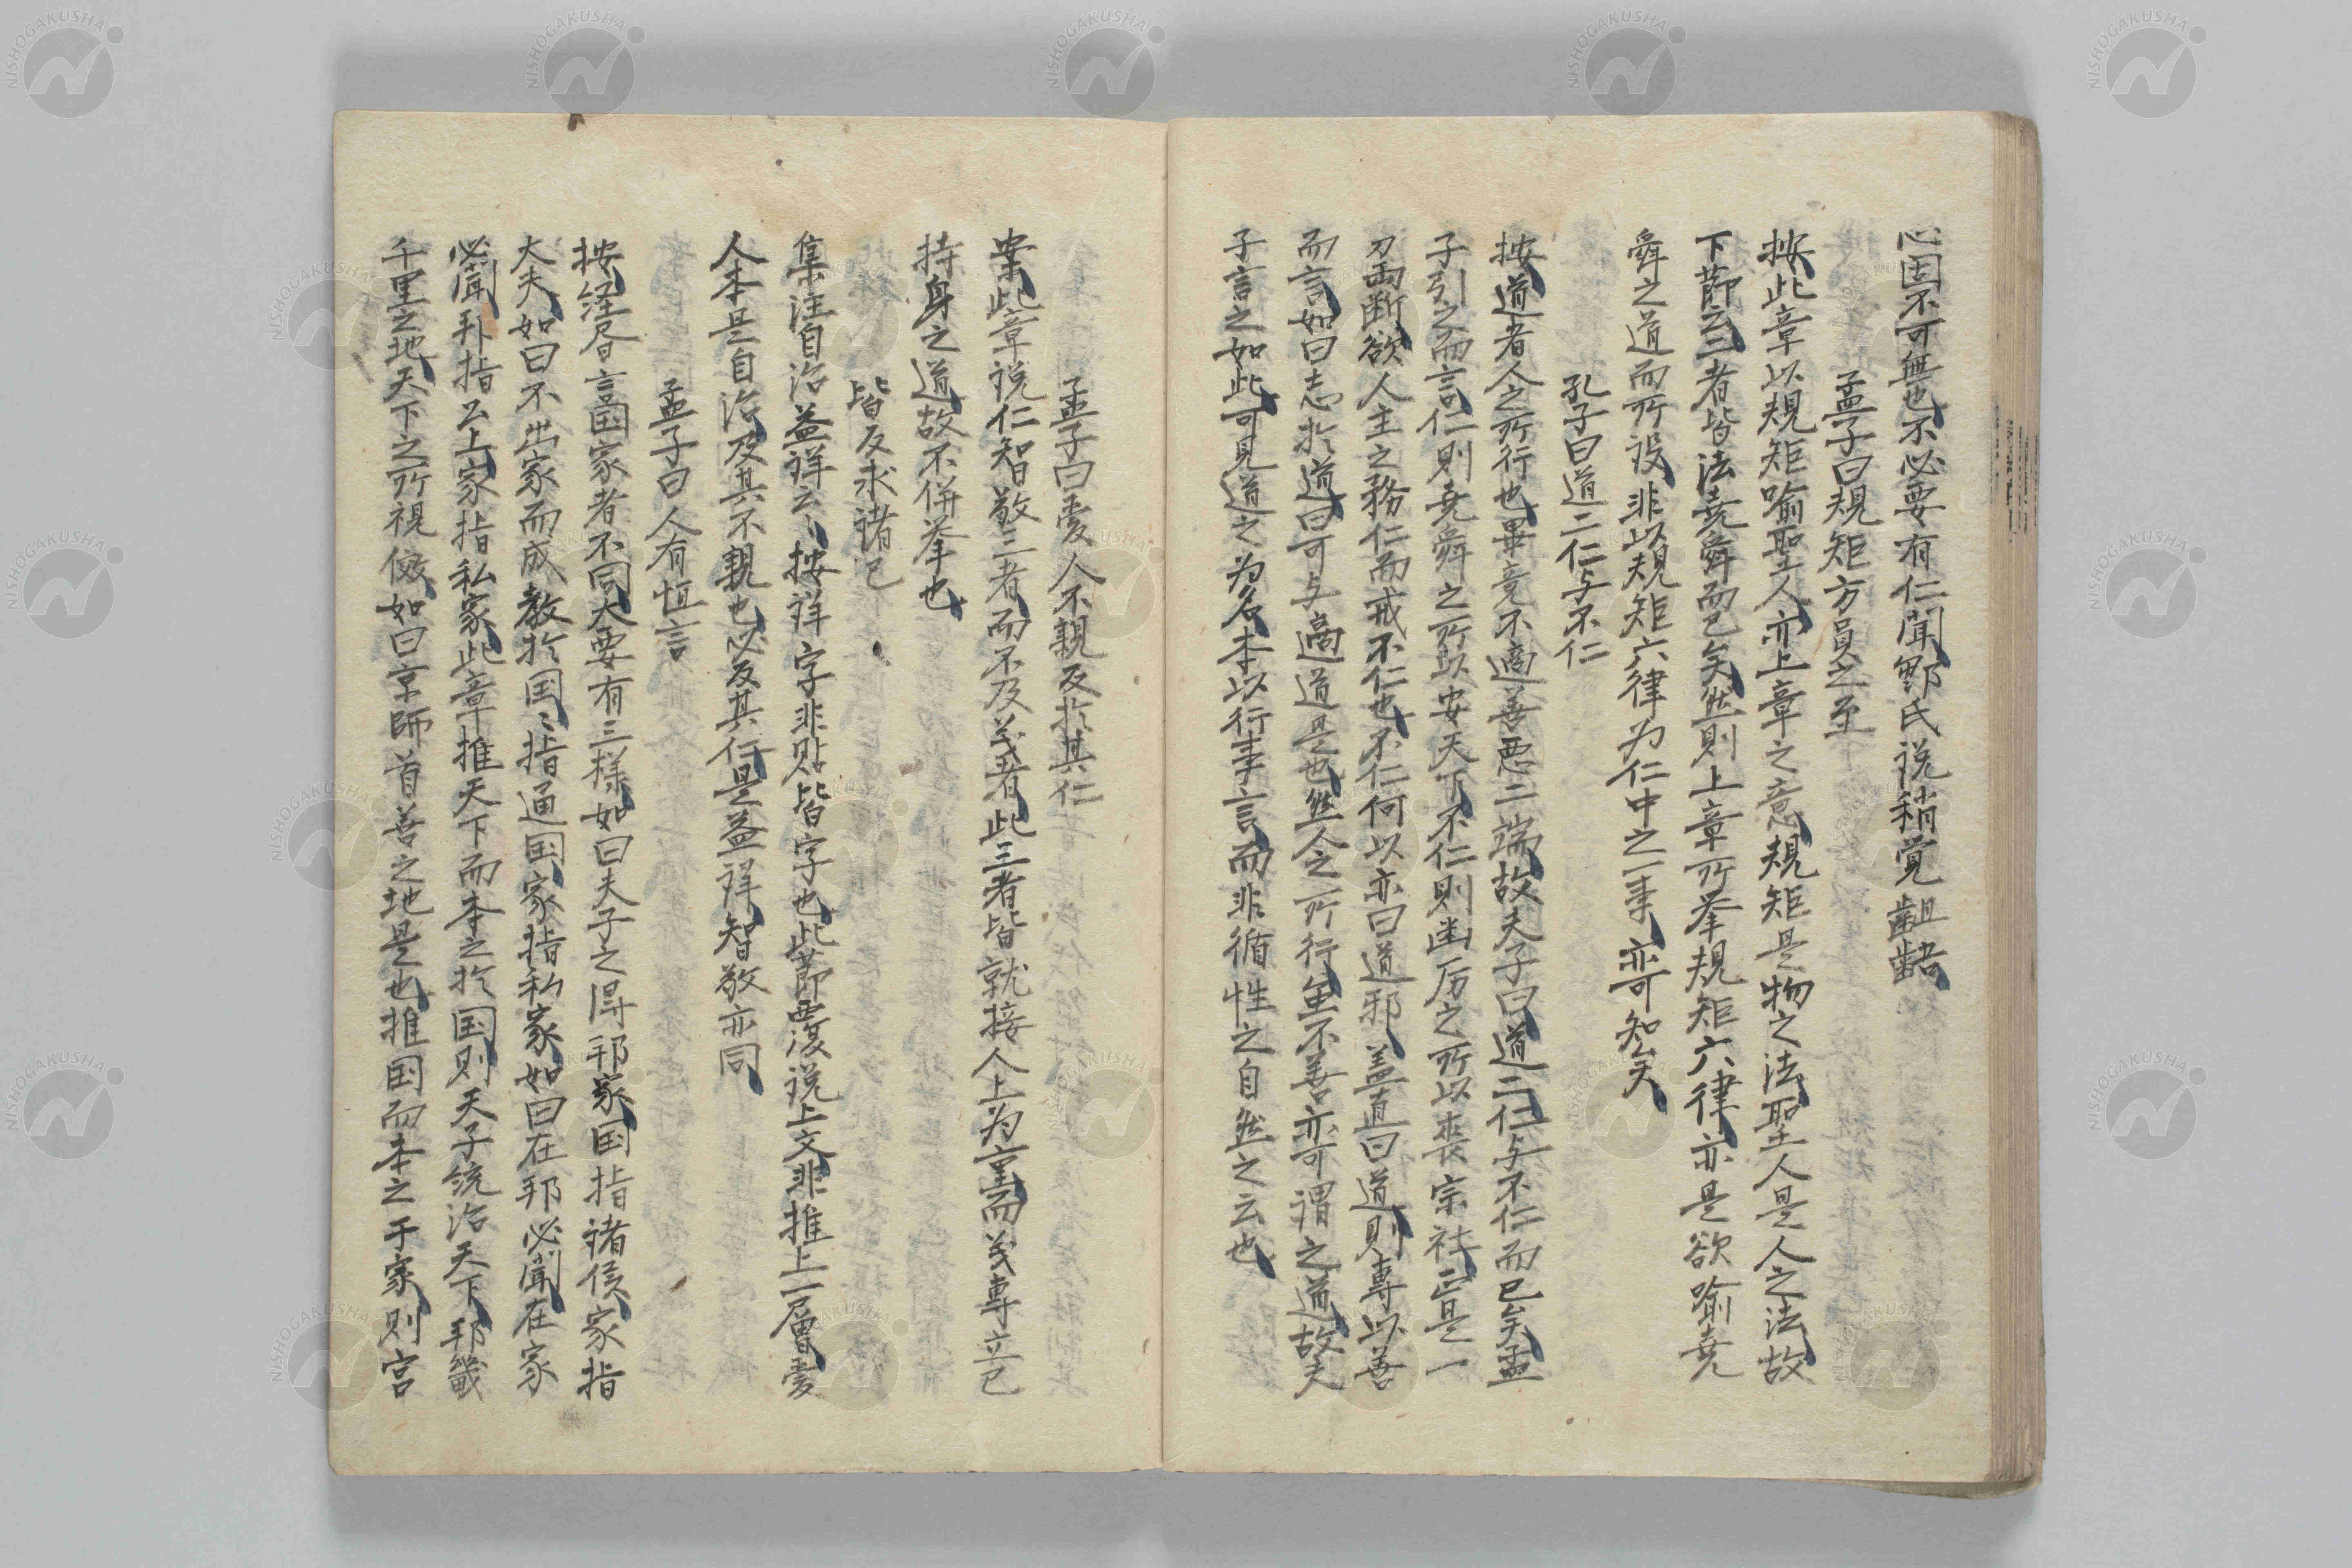 心因不可無也不必要有仁聞鄒氏説稍覚齟齬
孟子曰規矩方員之至
按此章以規矩喻聖人亦上章之意規矩是物之法聖人是人之法故
下節云二者皆法堯舜而已矣然則上章所挙規矩六律亦是欲喻堯
舜之道而所設非以規矩六律为仁中之一事亦可知矣
孔子曰道二仁与不仁
按道者人之所行也畢竟不適善悪二端故夫子曰道二仁与不仁而已矣孟
子引之而言仁則堯舜之所以安天下不仁則幽厉之所以喪宗社正是一
刀両断欲人主之務仁而戒不仁也不仁何以亦曰道邪盖直曰道則専以善
而言如曰志於道曰可与適道是也然人之所行虽不善亦可謂之道故夫
子言之如此可見道之为名本以行事言而非循性之自然之云也
孟子曰愛人不親反於其仁
案此章説仁智敬三者而不及义者此三者皆就接人上为言而义専立己
持身之道故不併挙也
皆反求諸己
集注自治益詳云〻按詳字非貼皆字也此節覆説上文非推上一層愛
人本是自治及其不親也必反其仁是益詳智敬亦同
孟子曰人有恒言
按経各言国家者不同大要有三様如曰夫子之得邦家国指諸侯家指
大夫如曰不出家而成教於国〻指通国家指私家如曰在邦必聞在家
必聞邦指公上家指私家此章推天下而本之於国则天子統治天下邦畿
千里之地天下之所視傚如曰京師首善之地是也推国而本之于家则宮